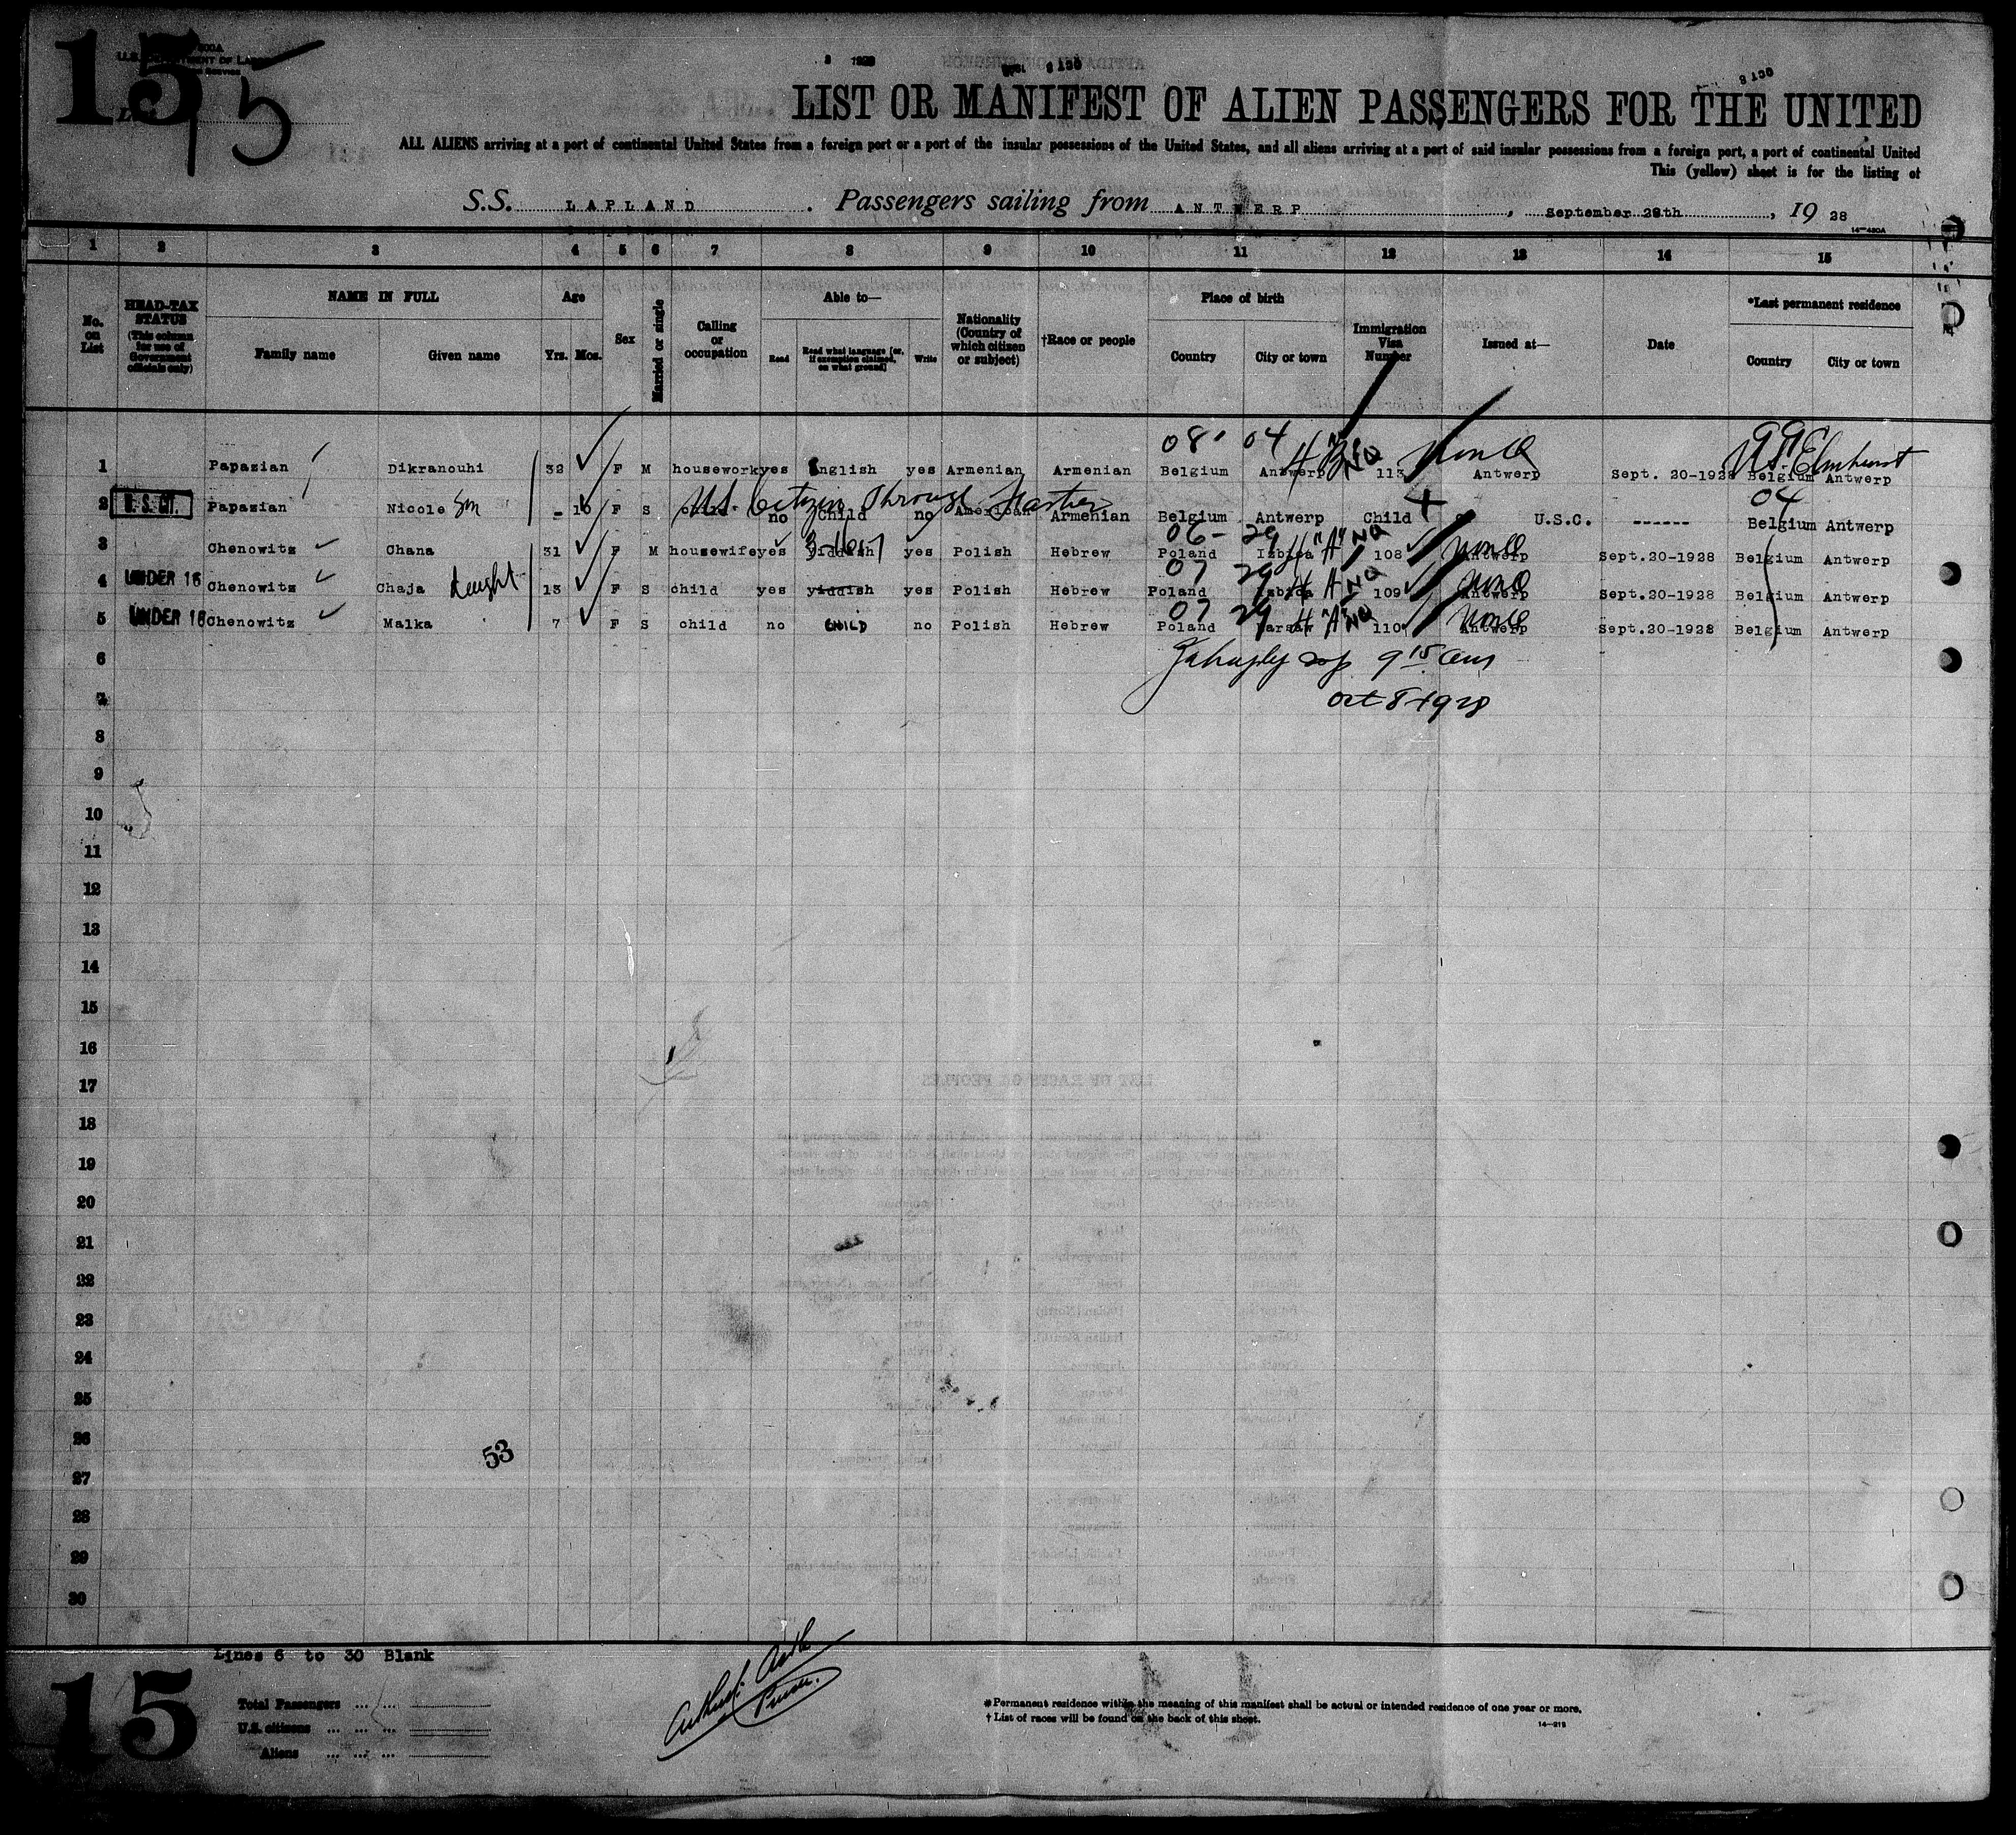 15
5
LIST OR MANIFEST OF ALIEN PASSENGERS FOR THE UNITED
ALL ALIENS arriving at a port of continental United States from a foreign port or a port of the insular possessions of the United States, and all aliens arriving at a port of said insular possessions from a foreign port, a port of continental United
This (yellow) sheet is for the listing of
S.S. LAPLAND. Passengers sailing from ANTWERP, September 28th, 19 28
1 2 3 4 5 6 7 8 9 10 11 12 13 14 15
No. on List
HEAD-TAX STATUS (This column for use of Government officials only)
NAME IN FULL
Family name Given name
Age
Yrs. Mos.
Sex
Married or single
Calling or occupation
Able to—
Read Read what language [or, if exemption claimed, on what ground] Write
Nationality (Country of which citizen or subject)
†Race or people
Place of birth
Country City or town
Immigration Visa Number
Issued at—
Date
*Last permanent residence
Country City or town
08 04 99
1 Papazian Dikranouhi 32 F M housework yes English yes Armenian Armenian Belgium Antwerp 113 Antwerp Sept. 20-1928 Belgium Antwerp
Elmhurst
U.S. Citizen Through Father
04
2 U.S. CIT. Papazian Nicole - 10 F S child no Child no American Armenian Belgium Antwerp Child U.S.C. ------ Belgium Antwerp
06 - 29
3 Chenowitz Chana 31 F M housewife yes yiddish yes Polish Hebrew Poland Izbica "A" NQ 108 Antwerp Sept.20-1928 Belgium Antwerp
07 29
4 UNDER 16 Chenowitz Chaja 13 F S child yes yiddish yes Polish Hebrew Poland Izbica NQ 109 Antwerp Sept.20-1928 Belgium Antwerp
07 29
5 UNDER 16 Chenowitz Malka 7 F S child no CHILD no Polish Hebrew Poland Warsaw "A" NQ 110 Antwerp Sept.20-1928 Belgium Antwerp
6
9 15 am
7
Oct 8 1928
8
9
10
11
12
13
14
15
16
17
18
19
20
21
22
23
24
25
26
53
27
28
29
30
Lines 6 to 30 Blank
15
Total Passengers
U.S. citizens
Aliens
* Permanent residence within the meaning of this manifest shall be actual or intended residence of one year or more.
† List of races will be found on the back of this sheet.